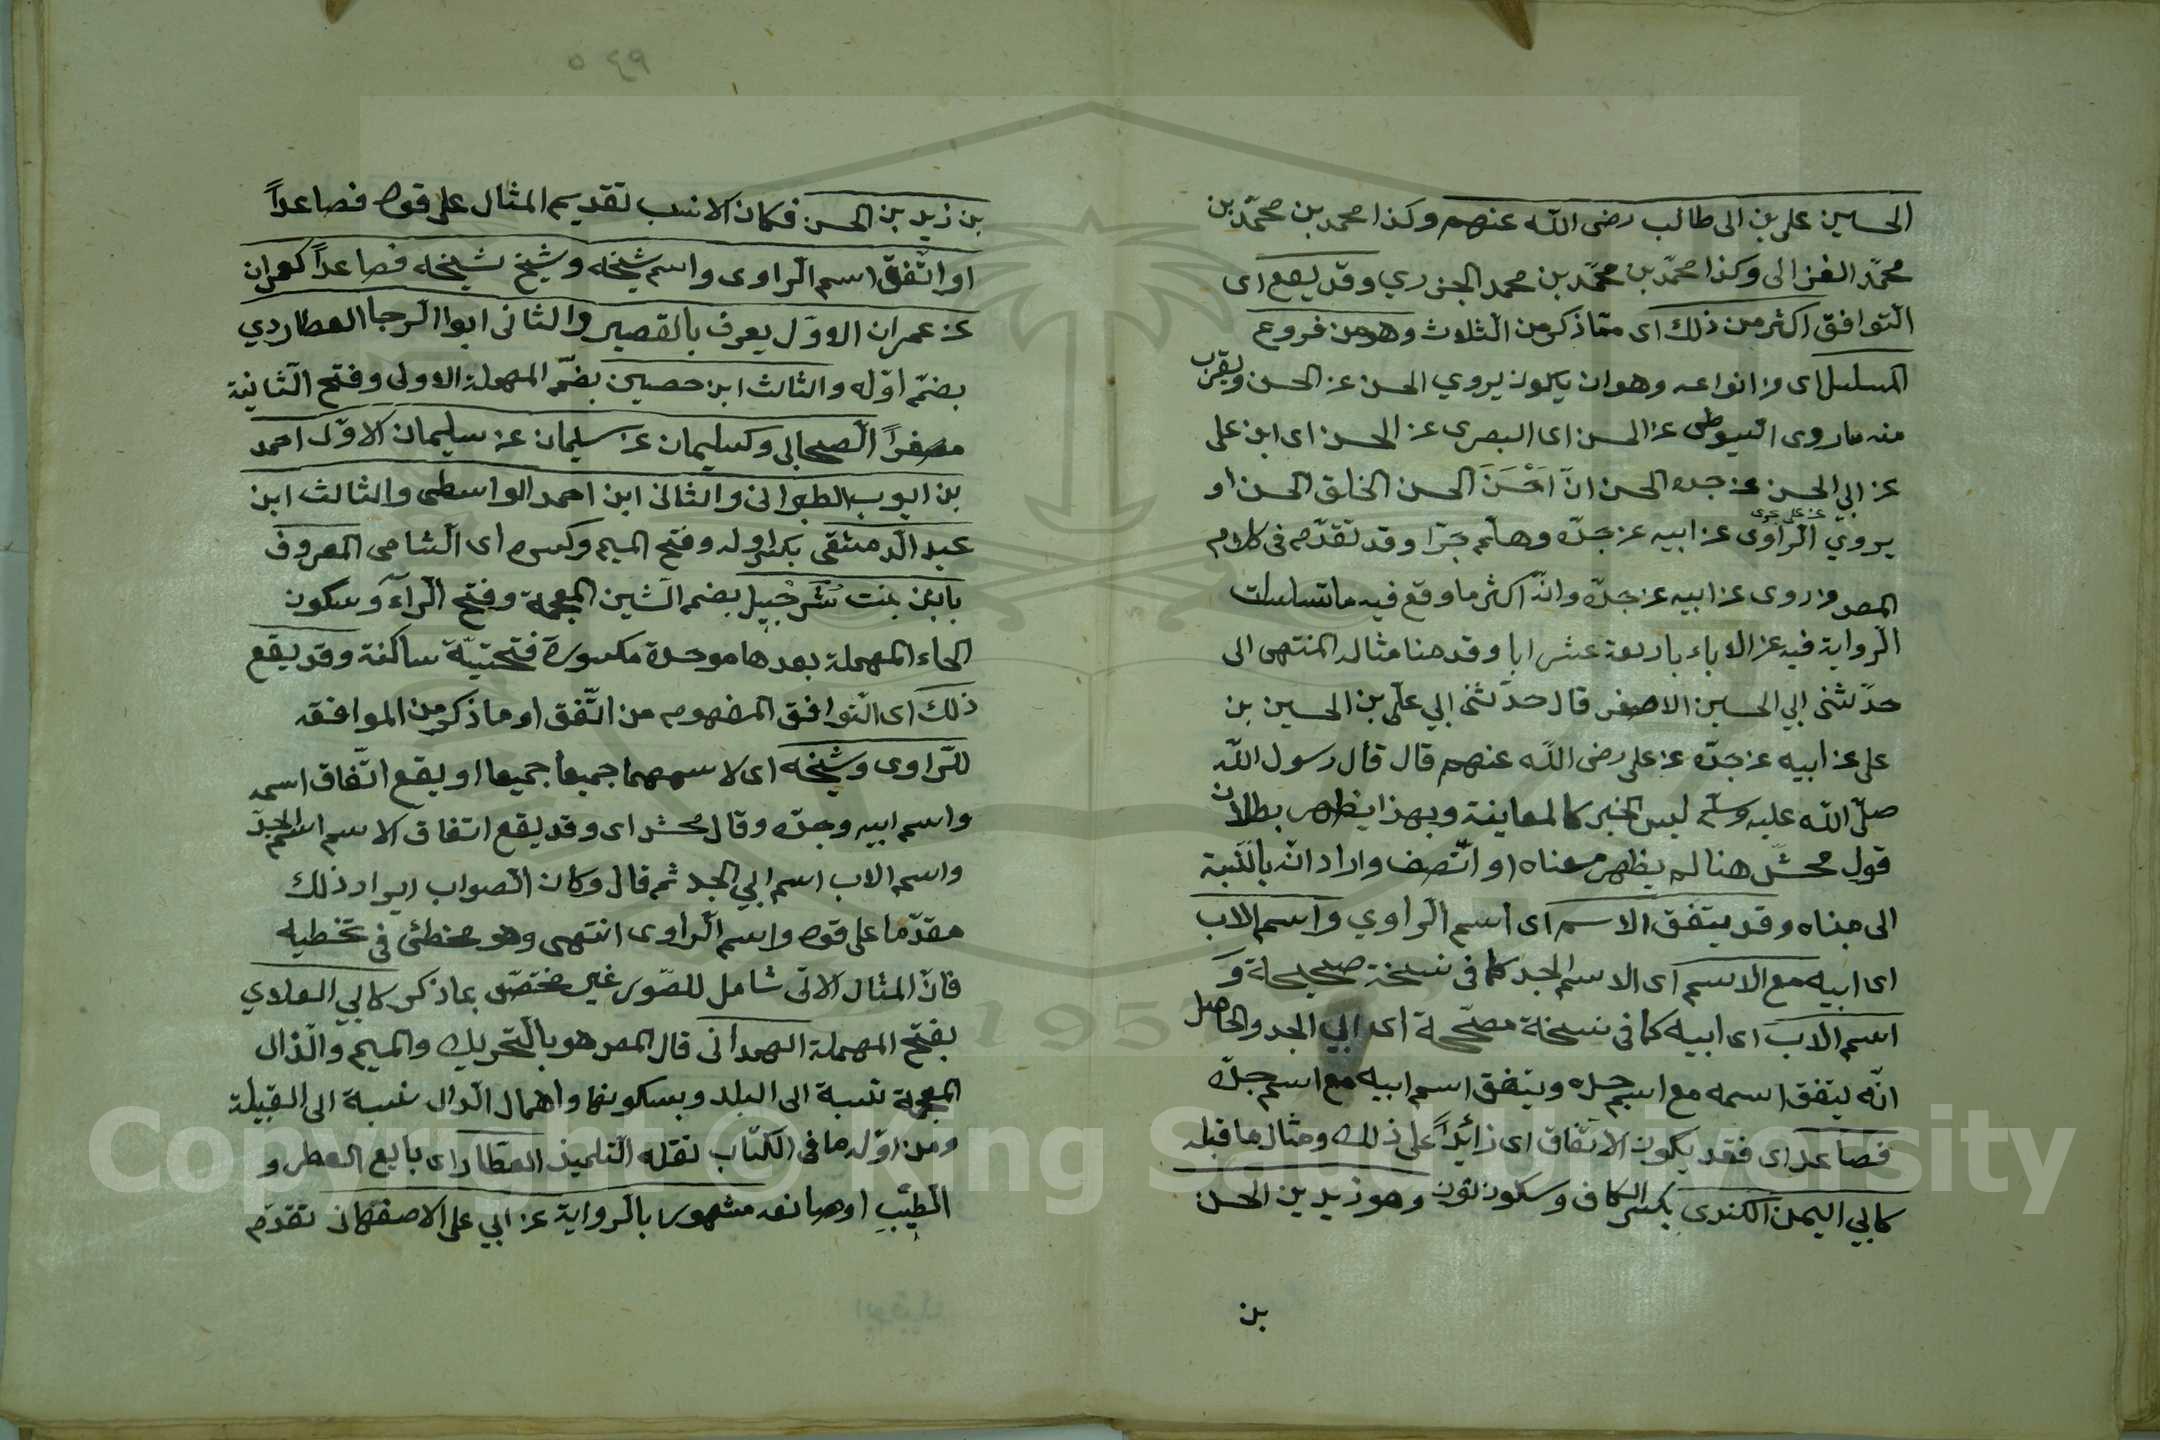 الحسين علي بن ابي طالب رضى الله عنهم وكذا محمد بن محمّد بن
محمّد الغزالي وكذا محمّد بن محمّد بن محمد الجزري وقد يقع اى
التوافق اكثر من ذلك اى ممّا ذكر من الثلاث وهو من فروع
المسلسل اى من انواعه وهو ان يكون يروي الحسن عن الحسن ويقرب
منه ما روى السيوطى عن الحسن اى البصرى عن الحسن اى ابن على
عن ابي الحسن عن جده الحسن انّ اَحْسَنَ الحسن الخلق الحسن او
يروي الراوى عن ابيه عن جدّه وهلم جرّا وقد تقدّم فى كلام
المص من روى عن ابيه عن جدّه وانّ اكثر ما وقع فيه ما تسلسلت
الرواية فيه عن الاباء باربعة عشر ابا وقدمنا مثاله المنتهى الى
حدّثنى ابي الحسين الاصغر قال حدّثنى ابي علي بن الحسين بن
علي عن ابيه عن جدّه عن على رضى الله عنهم قال قال رسول الله
صلّى الله عليه وسلم ليس الخبر كالمعاينة وبهذا يظهر بطلان
قول محشّ هنا لم يظهر معناه او اتّصف واراد انّه بالنسبة
الى مبناه وقد يتفق الاسم اى اسم الراوي واسم الاب
اى ابيه مع الاسم اى الاسم الجد كما فى نسخة صحيحة و
اسم الاب اى ابيه كما فى نسخة مصحّحة اى ابي الجد والحاصل
انّه يتفق اسمه مع اسم جده ويتفق اسم ابيه مع اسم جدّه
فصاعدا اى فقد يكون الاتفاق اى زائداً على ذلك ومثال ما قبله
كابي اليمن الكندى بكسر الكاف وسكون نون وهو زيد بن الحسن
بن
بن زيد بن الحسن فكان الانسب تقديم المثال على قوله فصاعداً
او اتّفق اسم الراوى واسم شيخه وشيخ شيخه فصاعداً كعمران
عن عمران الاوّل يعرف بالقصير والثانى ابوا الرجا العطاردي
بضمّ اوّله والثالث ابن حصين بضمّ المهملة الاولى وفتح الثانية
مصغراً الصحابي وكسليمان عن سليمان عن سليمان الاوّل احمد
بن ايوب الطبراني والثاني ابن احمد الواسطى والثالث ابن
عبد الدمشقى بكسر اوله وفتح الميم وكسره اى الشامى المعروف
بابن بنت شُرَحْبِيل بضم الشين المعجمة وفتح الرآء وسكون
الحاء المهملة بعدها موحدة مكسورة فتحتيّة ساكنة وقد يقع
ذلك اى التوافق المفهوم من اتّفق او ما ذكر من الموافقه
للراوى وشيخه اى لاسمهما جميعا جميعا او يقع اتّفاق اسمه
واسم ابيه وجدّه وقال محش اى وقد يقع اتفاق الاسم اسم الجدّ
واسم الاب اسم ابي الجد ثم قال وكان الصواب ايراد ذلك
مقدّما على قوله واسم الراوى انتهى وهو مخطئ فى تخطيه
فانّ المثال الاتى شامل للصّور غير مختصّ بما ذكر كابي العلاي
بفتح المهملة الهمدانى قال المص هو بالتحريك والميم والذال
المعجمة نسبة الى البلد وبسكونها واهمال الدال نسبة الى القبيلة
ومن اوّله ما فى الكتاب نقله التلميذ العطار اى بايع العطر و
الطيب او صانعه مشهور بالرواية عن ابي على الاصفهانى تقدّم
1957
Copyright © King Saud University